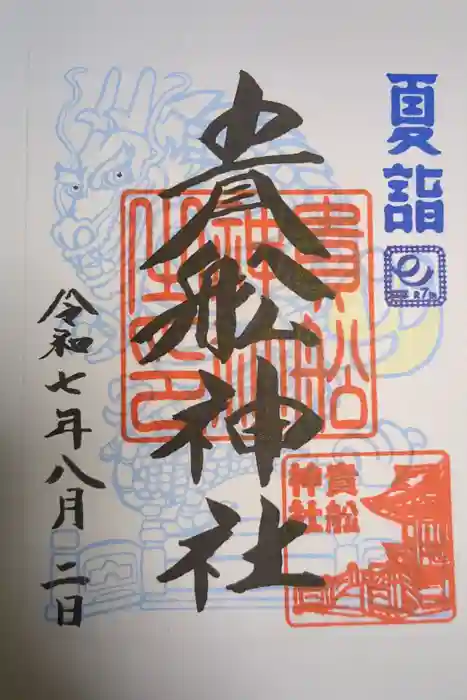 夏詣
貴船神社
令和七年八月二日
貴船
神社